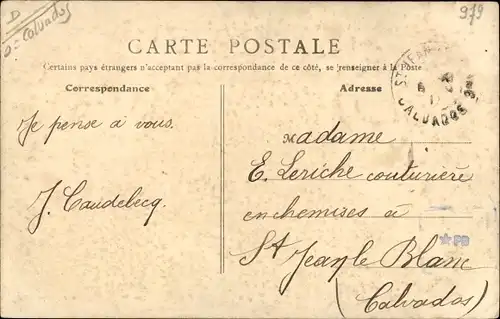 D
= Calvados
979
CARTE POSTALE
Certains pays étrangers n'acceptant pas la correspondance de ce côté, se renseigner à la Poste
Correspondance
Adresse
CALVADOS
Je pense à vous.
J. Caudebecq.
Madame
E. Leriche couturière
en chemises à
St Jean le Blanc
(Calvados)
PB